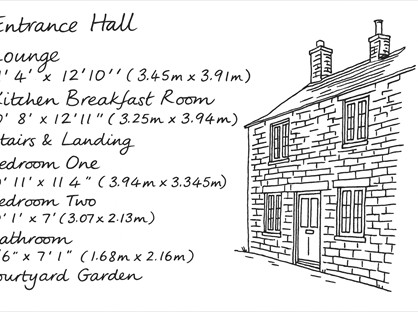 Entrance Hall
Lounge
' 4' x 12'10'' (3.45m x 3.91m)
Kitchen Breakfast Room
' 8' x 12'11" (3.25m x 3.94m)
Stairs & Landing
Bedroom One
' 11' x 11 4" (3.94m x 3.345m)
Bedroom Two
' 1' x 7' (3.07x2.13m)
Bathroom
'6" x 7'1" (1.68m x 2.16m)
Courtyard Garden